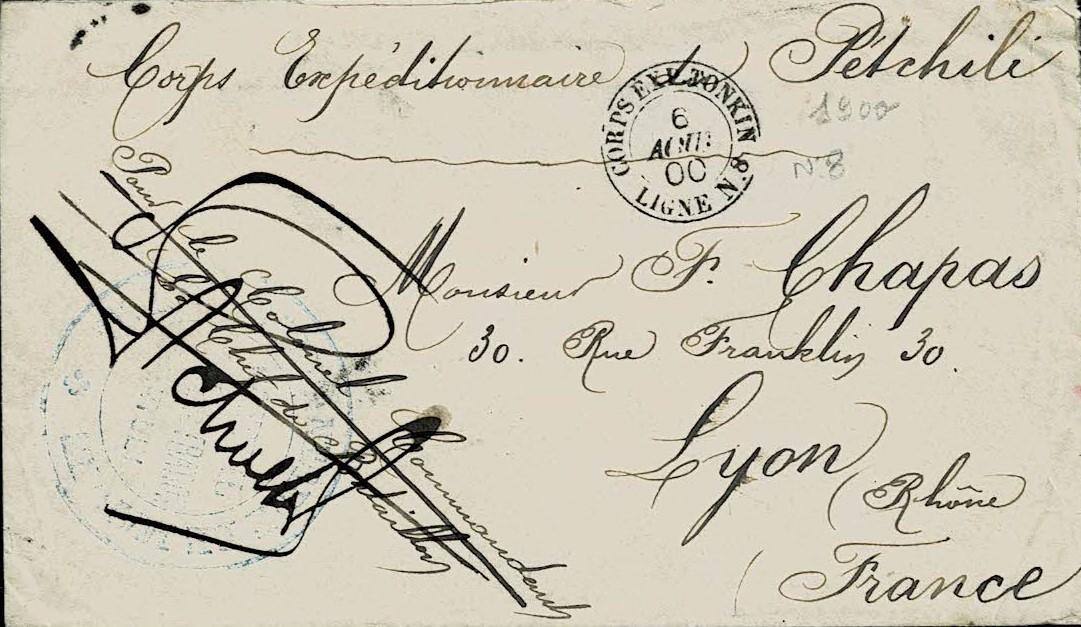 Corps Expéditionnaire Pétchili
CORPS EXP. TONKIN
6
AOUT
00
LIGNE N.8
1900
N.8
Monsieur F. Chapas
30. Rue Franklin 30.
Lyon
(Rhône
France
Pour le Colonel Commandant
Le Chef de Bataillon